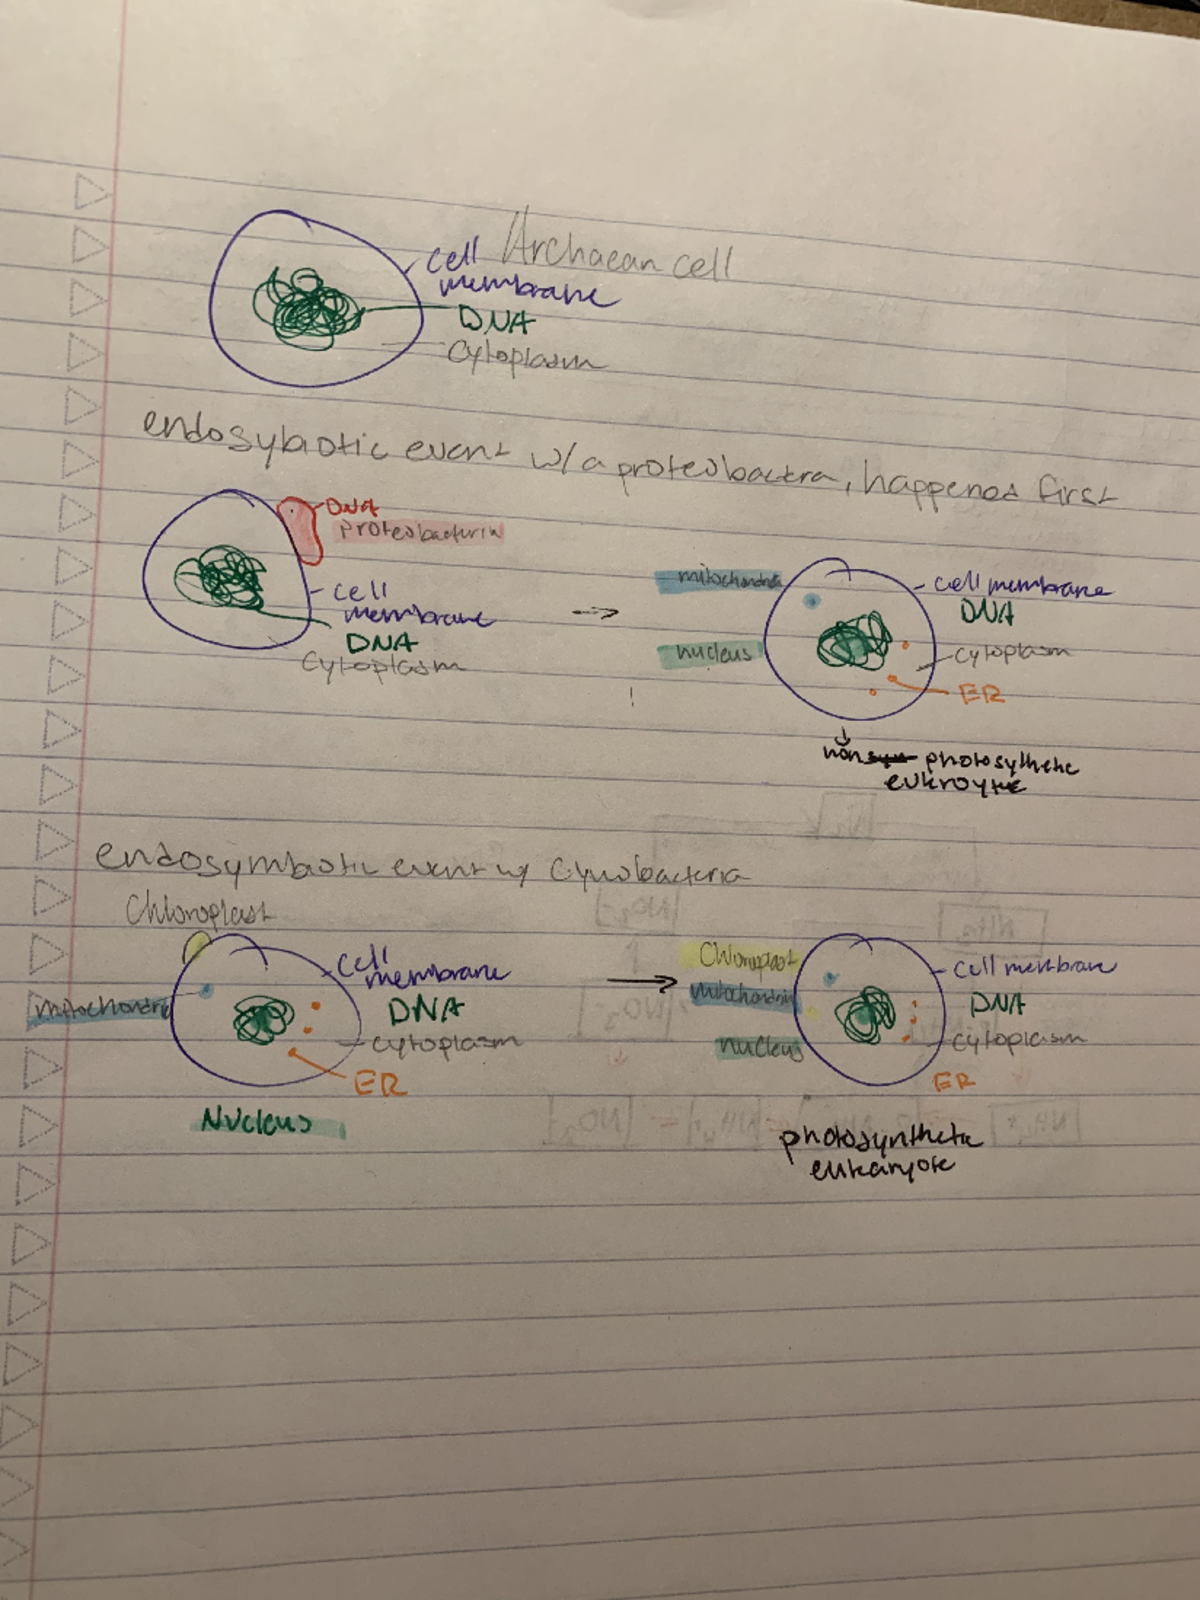 Archaean cell
cell
membrane
DNA
Cytoplasm
endosybiotic event w/ a proteobactera, happened first
DNA
proteobacteria
cell
membrane
DNA
Cytoplasm
mitochondria
nucleus
cell membrane
DNA
cytoplasm
ER
non photosythetic
eukroyte
endosymbiotic event w/ Cynobacteria
Chloroplast
mitochondria
cell
membrane
DNA
cytoplasm
ER
Nucleus
Chloroplast
mitochondria
nucleus
cell membrane
DNA
cytoplasm
ER
photosynthetic
eukaryote